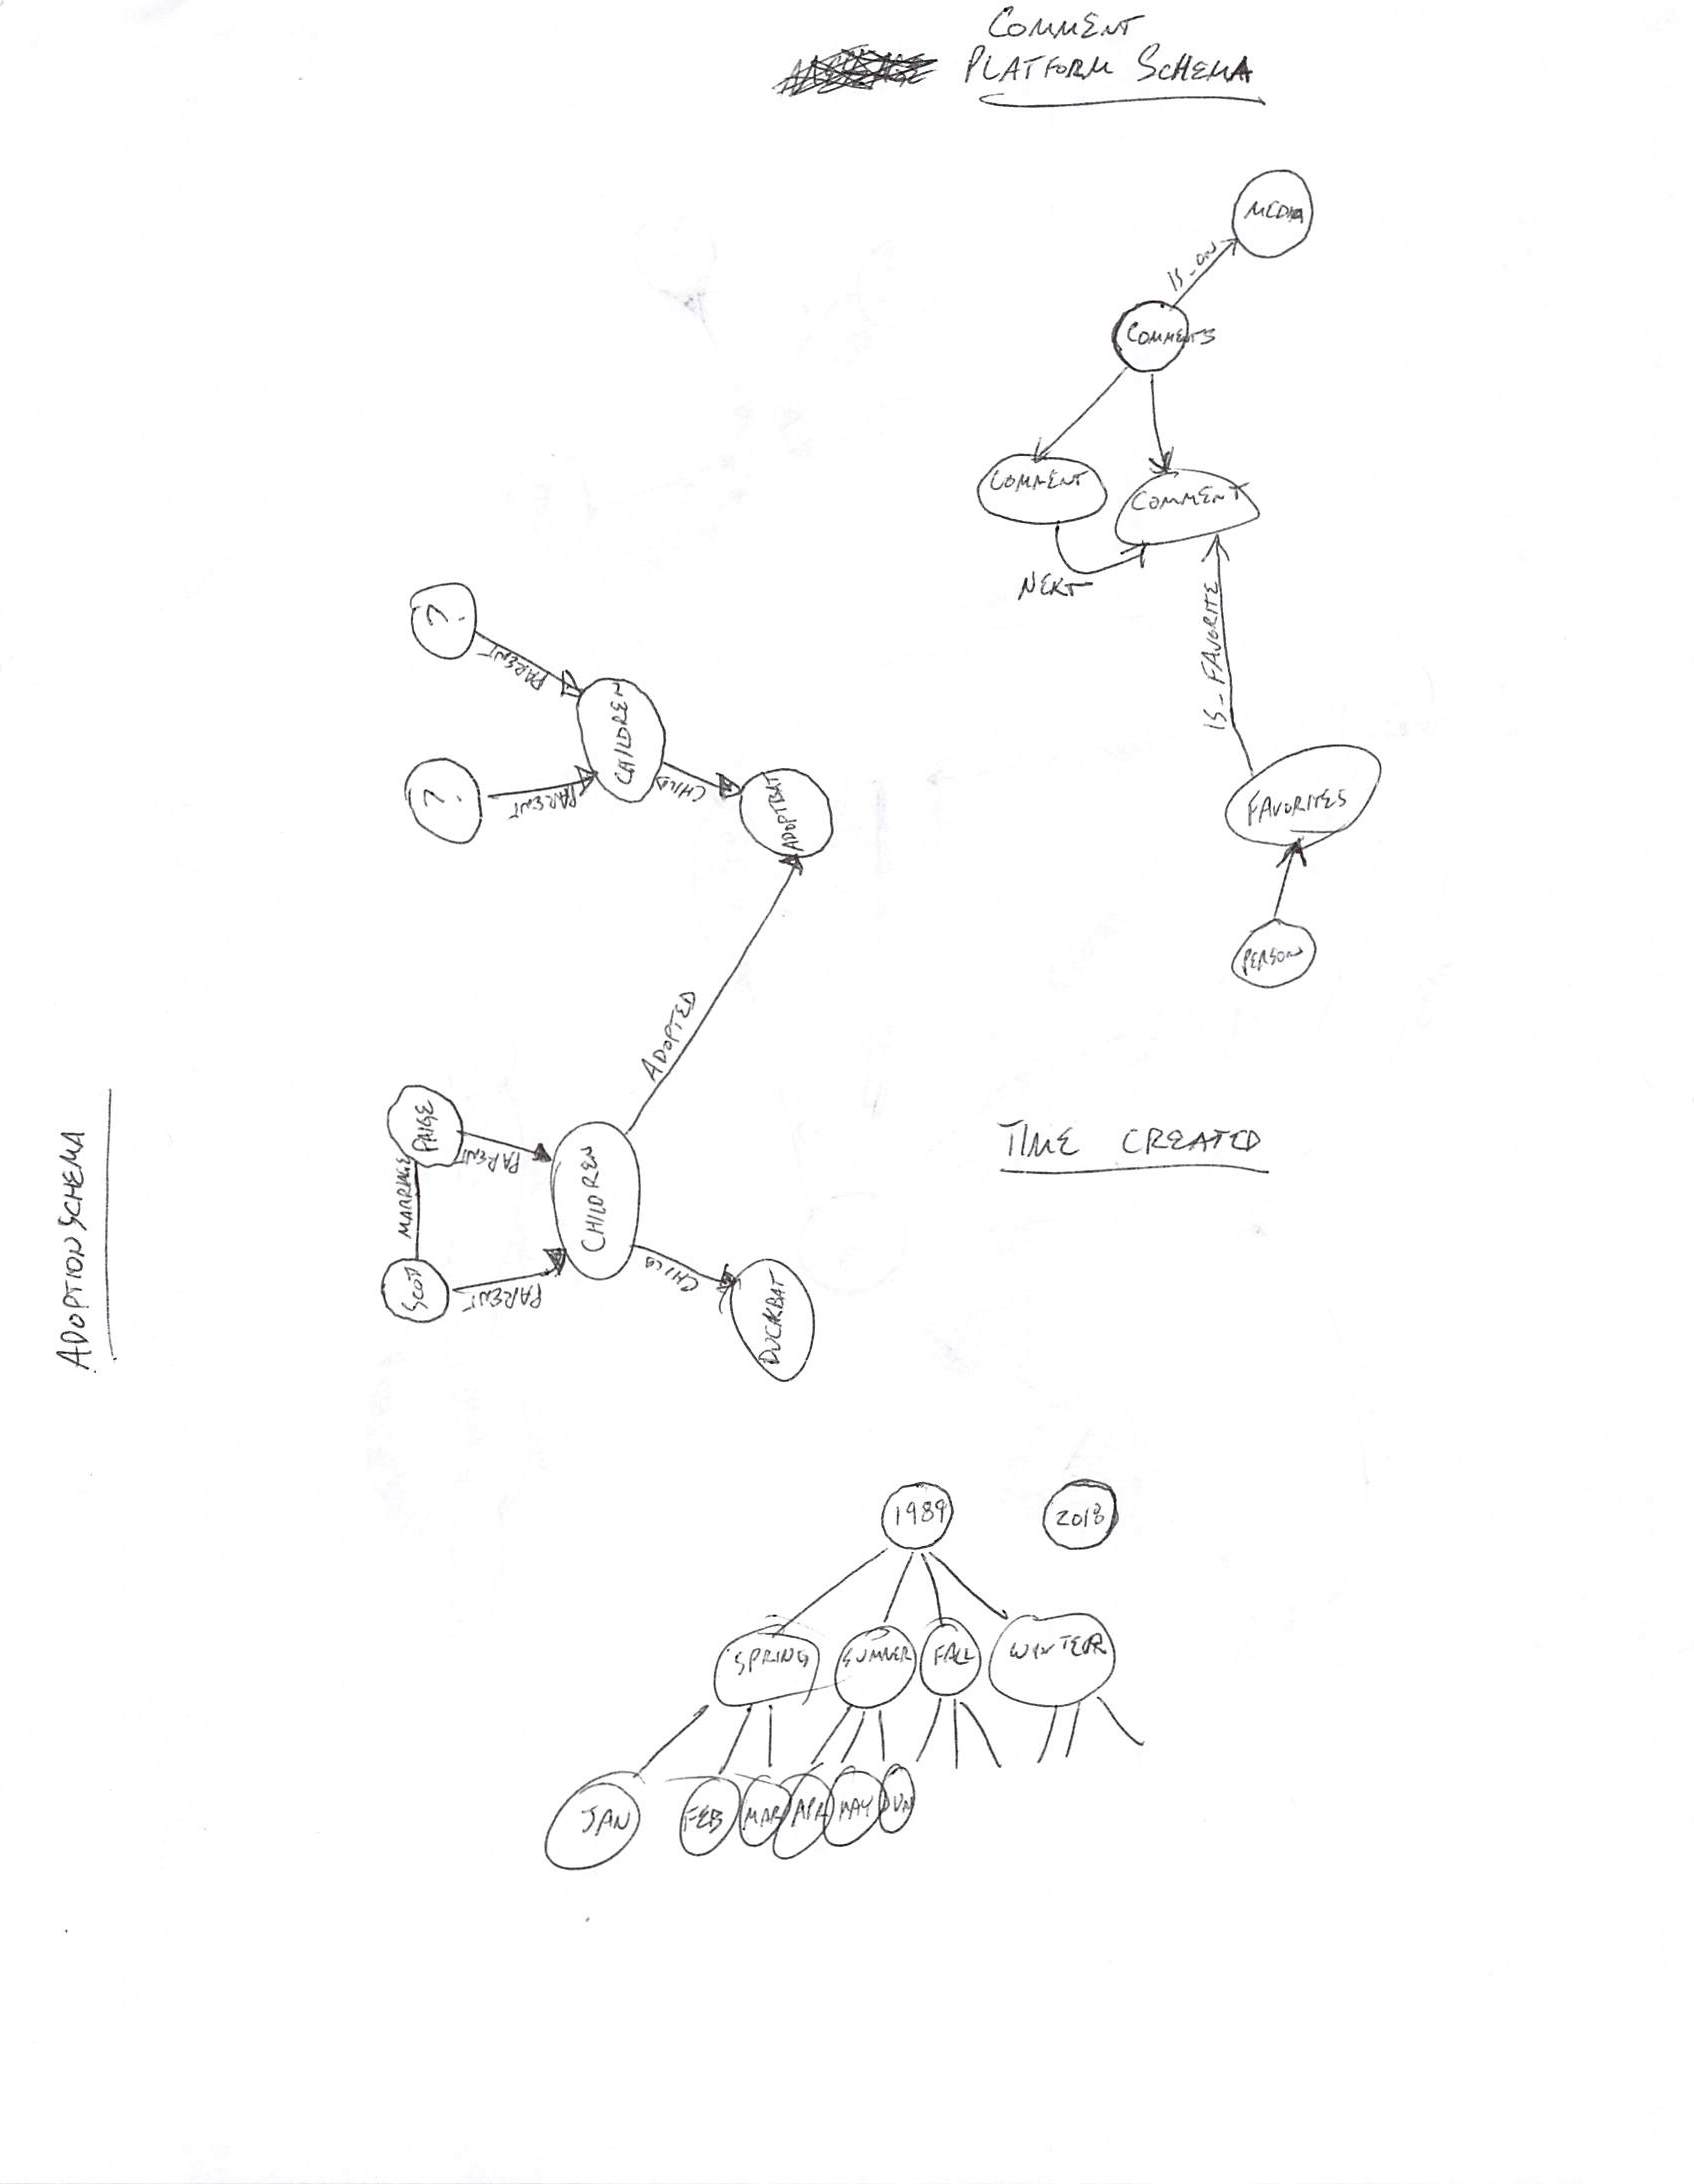 COMMENT
PLATFORM SCHEMA
MEDIA
IS_ON
COMMENTS
COMMENT
COMMENT
NEXT
IS_FAVORITE
FAVORITES
PERSON
ADOPTION SCHEMA
?
PARENT
?
PARENT
CHILDREN
CHILD
ADOPTBAT
ADOPTED
PAIGE
PARENT
MARRIAGE
SCOT
PARENT
CHILDREN
CHILD
DUCKBAT
TIME CREATED
1989 2018
SPRING SUMMER FALL WINTER
JAN FEB MAR APR MAY JUN